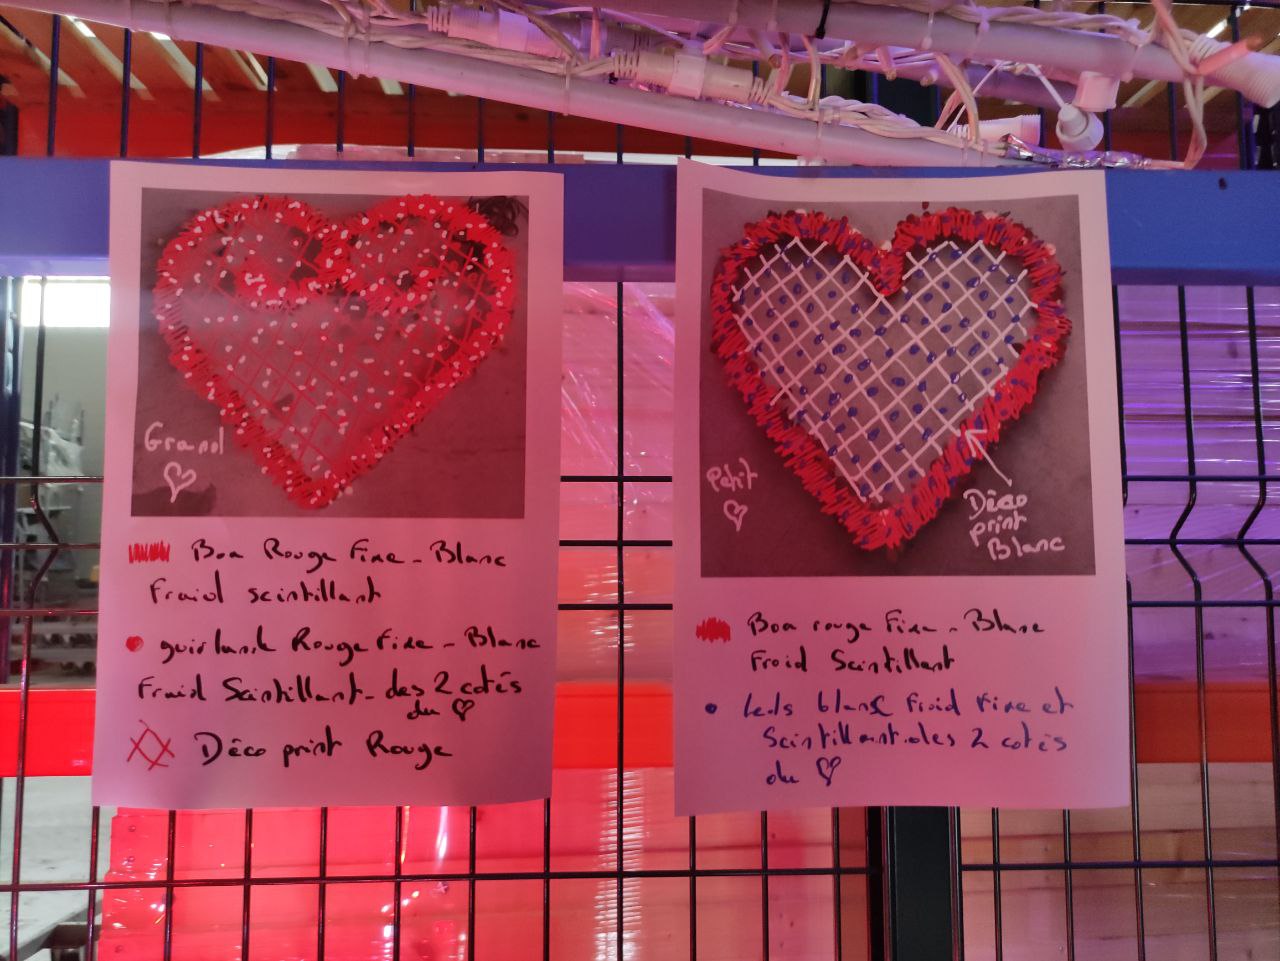 Grand
Boa Rouge Fixe - Blanc
Froid scintillant
guirlande Rouge Fixe - Blanc
Froid Scintillant - des 2 cotés
du
Déco print Rouge
Petit
Déco
print
Blanc
Boa rouge Fixe - Blanc
Froid Scintillant
Leds blanc Froid Fixe et
Scintillant des 2 cotés
du